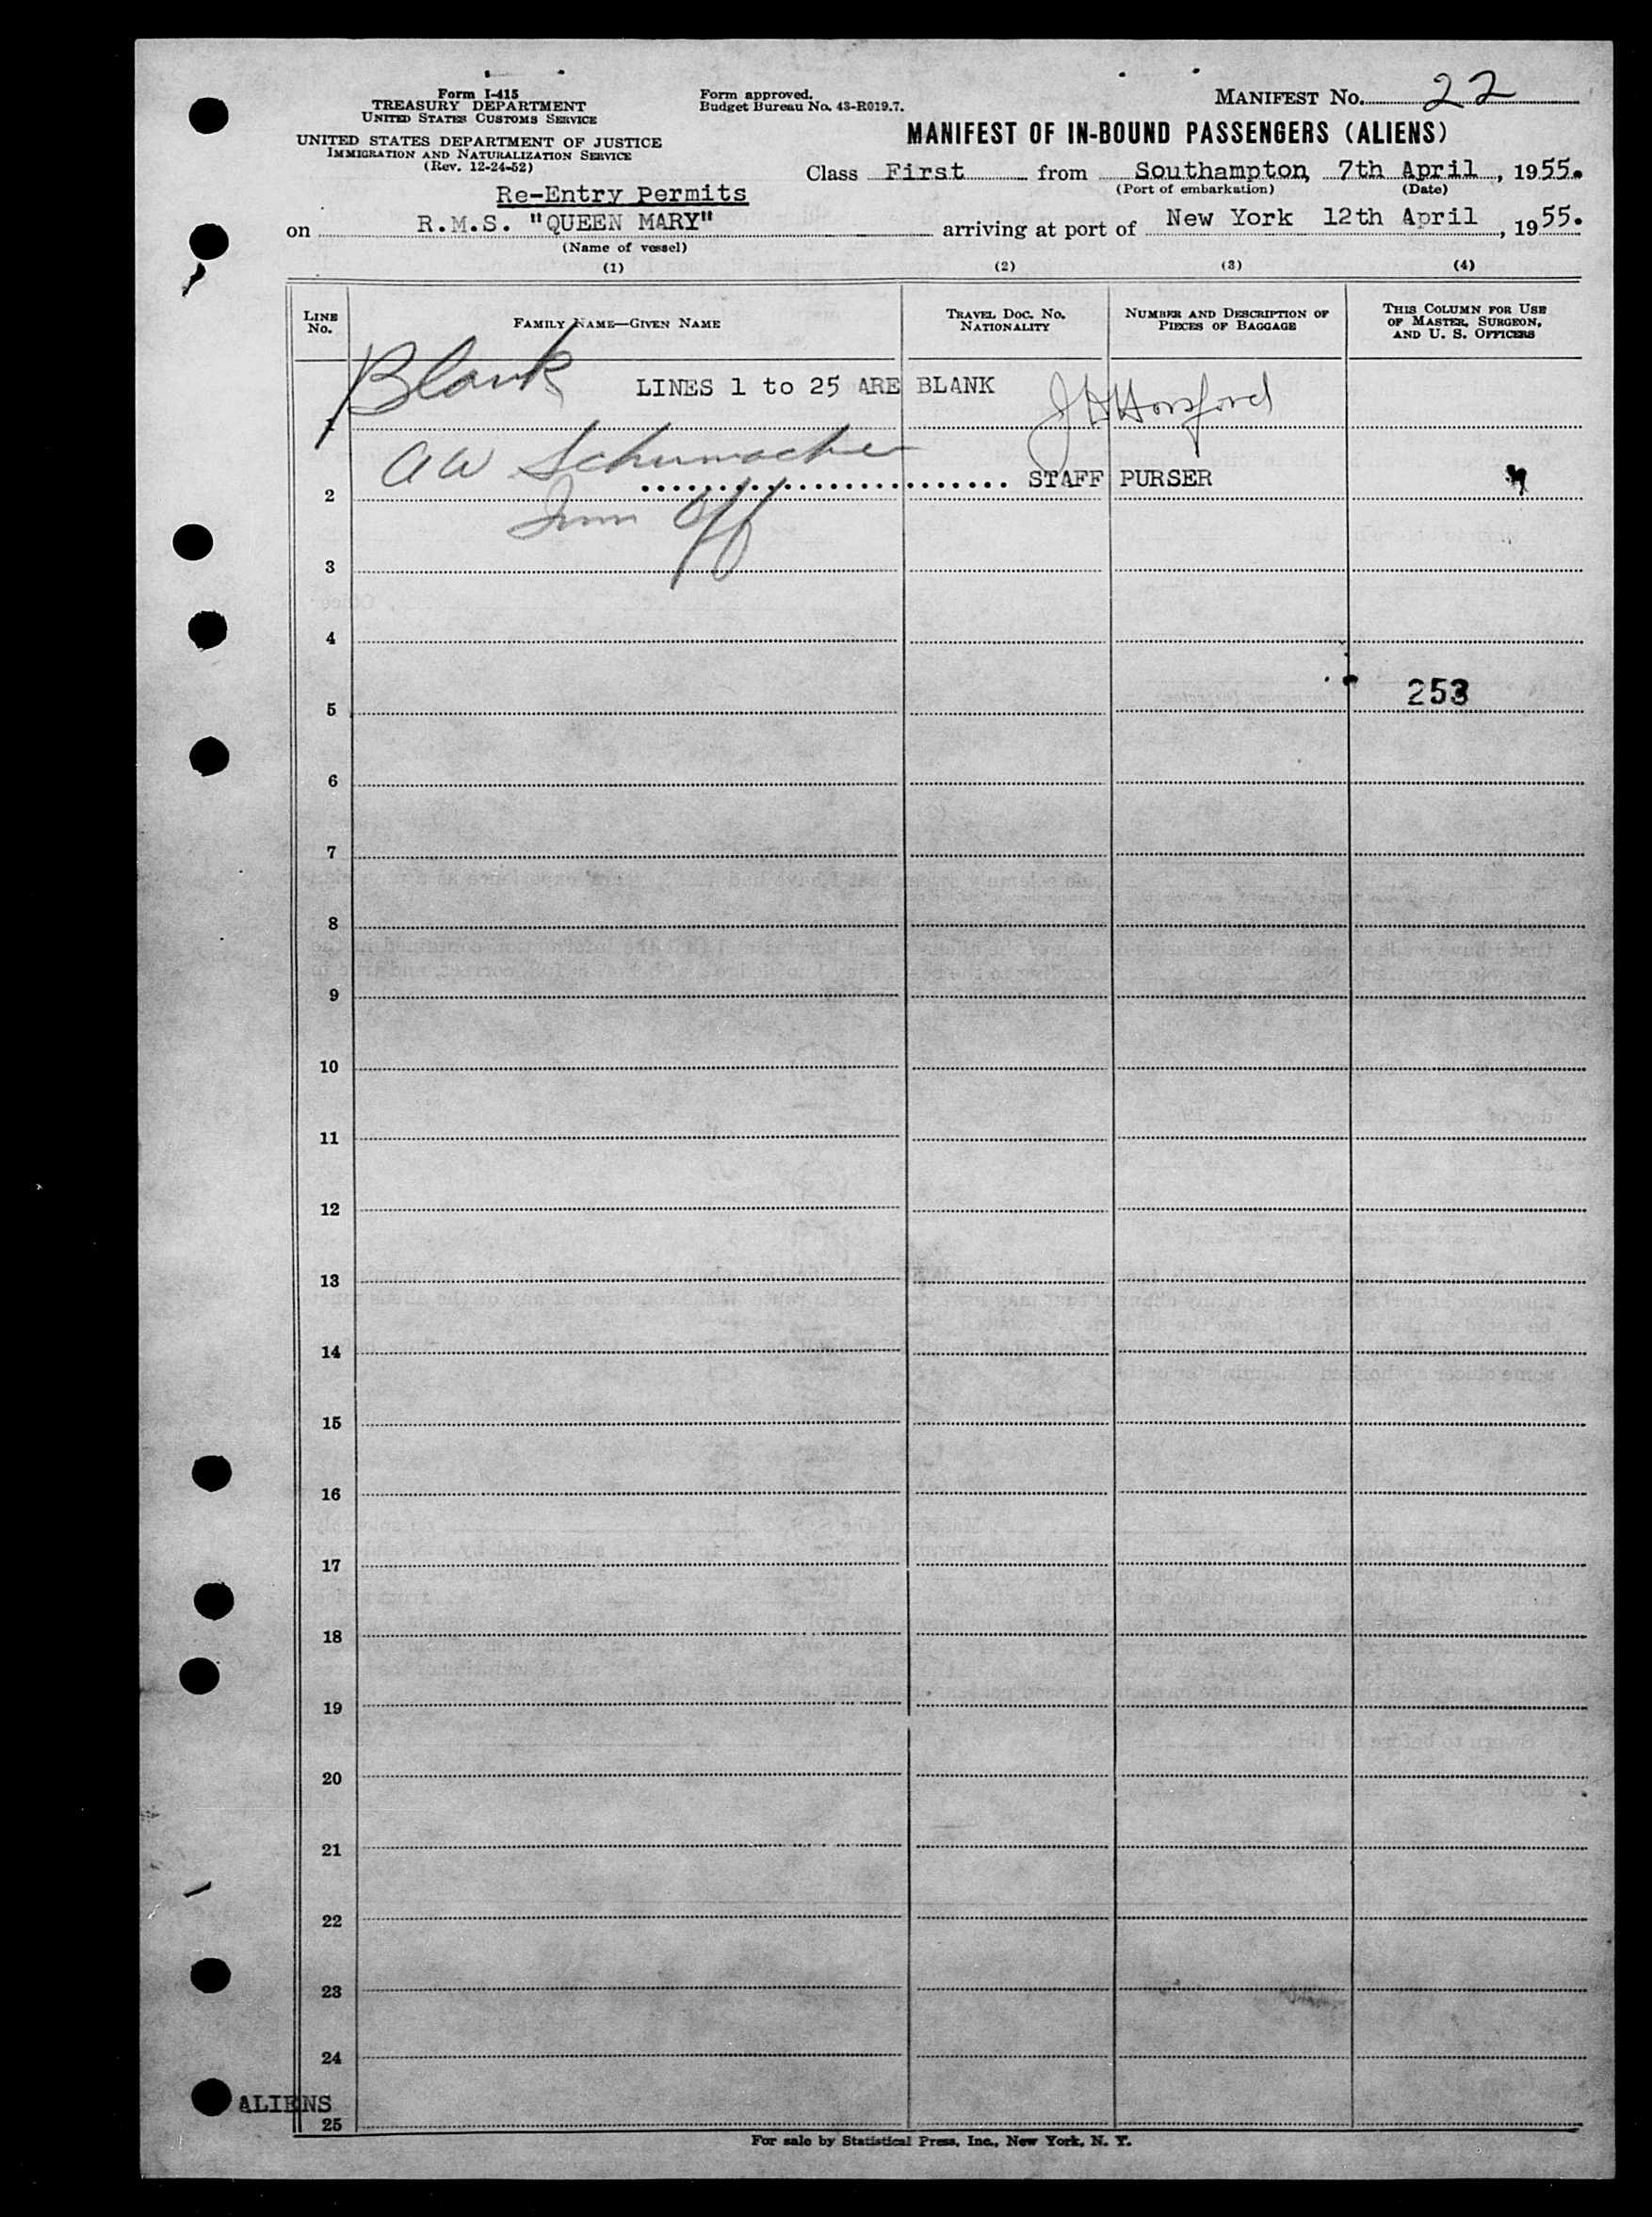 Form I-415
TREASURY DEPARTMENT
UNITED STATES CUSTOMS SERVICE
UNITED STATES DEPARTMENT OF JUSTICE
IMMIGRATION AND NATURALIZATION SERVICE
(Rev. 12-24-52)
Form approved.
Budget Bureau No. 43-R019.7.
MANIFEST NO. 22
MANIFEST OF IN-BOUND PASSENGERS (ALIENS)
Class First from Southampton, 7th April, 1955.
(Port of embarkation) (Date)
Re-Entry Permits
on R.M.S. "QUEEN MARY" arriving at port of New York 12th April, 1955.
(Name of vessel)
(1) (2) (3) (4)
LINE NO.
FAMILY NAME—GIVEN NAME
TRAVEL DOC. NO. NATIONALITY
NUMBER AND DESCRIPTION OF PIECES OF BAGGAGE
THIS COLUMN FOR USE OF MASTER, SURGEON, AND U. S. OFFICERS
Blank
LINES 1 to 25 ARE BLANK
J H Horsford
1
A W Schumacher
STAFF PURSER
2
Imm Off
3
4
253
5
6
7
8
9
10
11
12
13
14
15
16
17
18
19
20
21
22
23
24
ALIENS
25
For sale by Statistical Press, Inc., New York, N. Y.